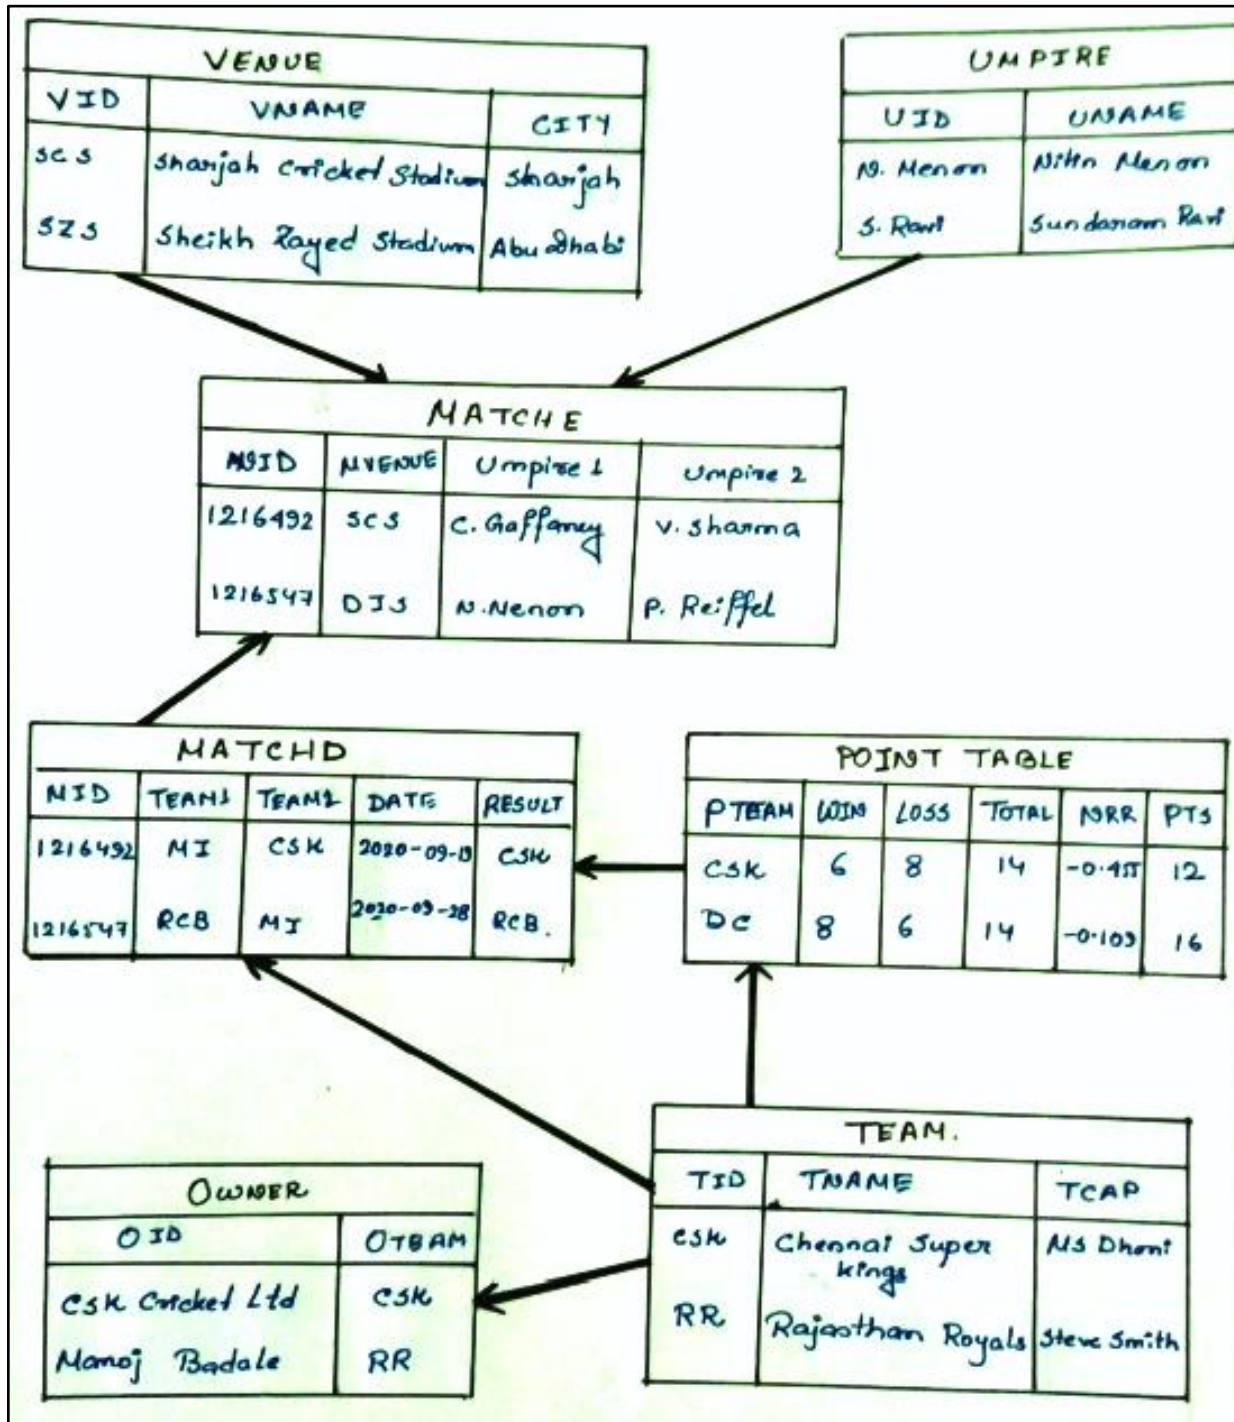 VENUE
VID VNAME CITY
SCS Sharjah Cricket Stadium Sharjah
SZS Sheikh Zayed Stadium Abu Dhabi
UMPIRE
UID UNAME
N. Menon Nitin Menon
S. Ravi Sundaram Ravi
MATCHE
MID MVENUE Umpire 1 Umpire 2
1216492 SCS C. Gaffaney V. Sharma
1216547 DIS N. Menon P. Reiffel
MATCHD
MID TEAM1 TEAM2 DATE RESULT
1216492 MI CSK 2020-09-19 CSK
1216547 RCB MI 2020-09-28 RCB.
POINT TABLE
PTEAM WIN LOSS TOTAL NRR PTS
CSK 6 8 14 -0.455 12
DC 8 6 14 -0.109 16
TEAM.
TID TNAME TCAP
CSK Chennai Super MS Dhoni
kings
RR Rajasthan Royals Steve Smith
OWNER
OID OTEAM
CSK Cricket Ltd CSK
Manoj Badale RR